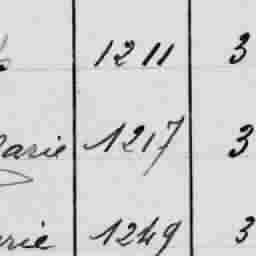 1211 3
Marie 1217 3
1249 3